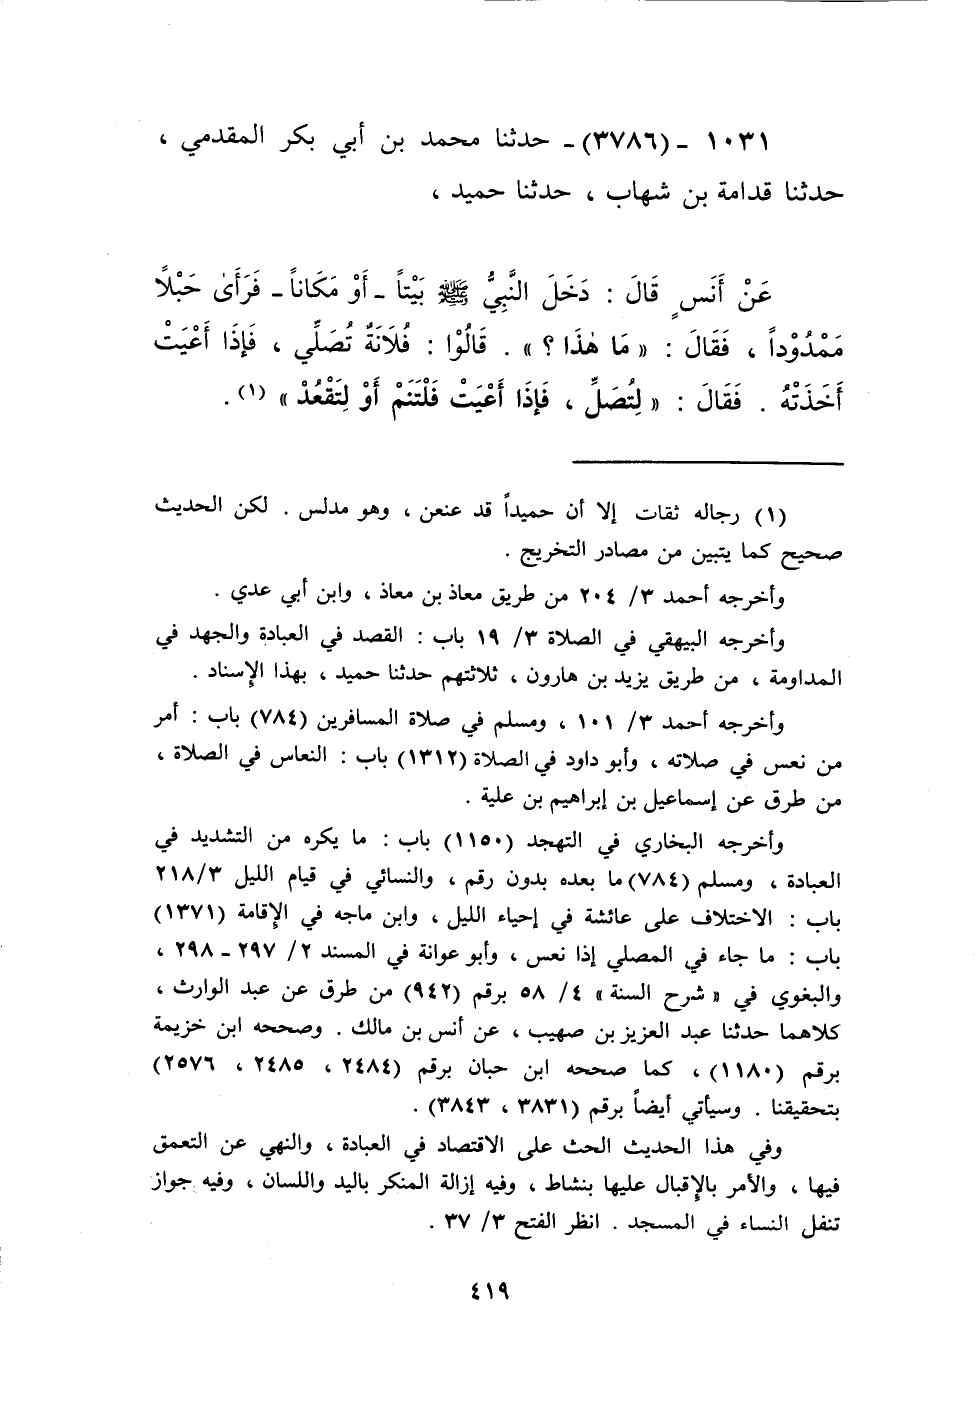 ١٠٣١ - (٣٧٨٦) - حدثنا محمد بن أبي بكر المقدمي ،
حدثنا قدامة بن شهاب ، حدثنا حميد ،
عَنْ أَنَسٍ قَالَ : دَخَلَ النَّبِيُّ ﷺ بَيْتاً - أَوْ مَكَاناً - فَرَأَىٰ حَبْلًا
مَمْدُوْداً ، فَقَالَ : « مَا هٰذَا ؟ » . قَالُوْا : فُلَانَةٌ تُصَلِّي ، فَإِذَا أَعْيَتْ
أَخَذَتْهُ . فَقَالَ : « لِتُصَلِّ ، فَإِذَا أَعْيَتْ فَلْتَنَمْ أَوْ لِتَقْعُدْ » (١) .
(١) رجاله ثقات إلا أن حميداً قد عنعن ، وهو مدلس . لكن الحديث
صحيح كما يتبين من مصادر التخريج .
وأخرجه أحمد ٣/ ٢٠٤ من طريق معاذ بن معاذ ، وابن أبي عدي .
وأخرجه البيهقي في الصلاة ٣/ ١٩ باب : القصد في العبادة والجهد في
المداومة ، من طريق يزيد بن هارون ، ثلاثتهم حدثنا حميد ، بهذا الإسناد .
وأخرجه أحمد ٣/ ١٠١ ، ومسلم في صلاة المسافرين (٧٨٤) باب : أمر
من نعس في صلاته ، وأبو داود في الصلاة (١٣١٢) باب : النعاس في الصلاة ،
من طرق عن إسماعيل بن إبراهيم بن علية .
وأخرجه البخاري في التهجد (١١٥٠) باب : ما يكره من التشديد في
العبادة ، ومسلم (٧٨٤) ما بعده بدون رقم ، والنسائي في قيام الليل ٢١٨/٣
باب : الاختلاف على عائشة في إحياء الليل ، وابن ماجه في الإقامة (١٣٧١)
باب : ما جاء في المصلي إذا نعس ، وأبو عوانة في المسند ٢/ ٢٩٧ - ٢٩٨ ،
والبغوي في « شرح السنة » ٤/ ٥٨ برقم (٩٤٢) من طرق عن عبد الوارث ،
كلاهما حدثنا عبد العزيز بن صهيب ، عن أنس بن مالك . وصححه ابن خزيمة
برقم (١١٨٠) ، كما صححه ابن حبان برقم (٢٤٨٤ ، ٢٤٨٥ ، ٢٥٧٦)
بتحقيقنا . وسيأتي أيضاً برقم (٣٨٣١ ، ٣٨٤٣) .
وفي هذا الحديث الحث على الاقتصاد في العبادة ، والنهي عن التعمق
فيها ، والأمر بالإقبال عليها بنشاط ، وفيه إزالة المنكر باليد واللسان ، وفيه جواز
تنفل النساء في المسجد . انظر الفتح ٣/ ٣٧ .
٤١٩